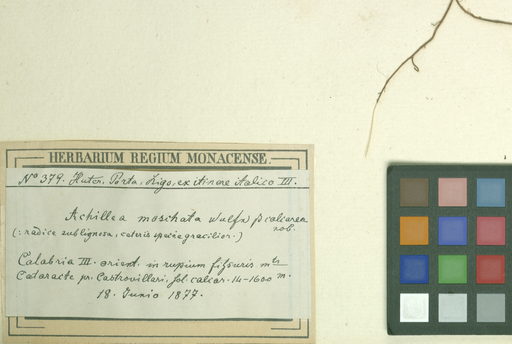 HERBARIUM REGIUM MONACENSE.
Nº 379. Huter, Porta, Rigo, ex itinere italico III.
Achillea moschata Wulf. β calcarea
nob.
(: radice sublignosa, ceteris specie gracilior. :)
Calabria III. orient. in rupium fissuris mtis
Cataracte pr. Castrovillari, sol. calcar. 14-1600 m.
18. Junio 1877.